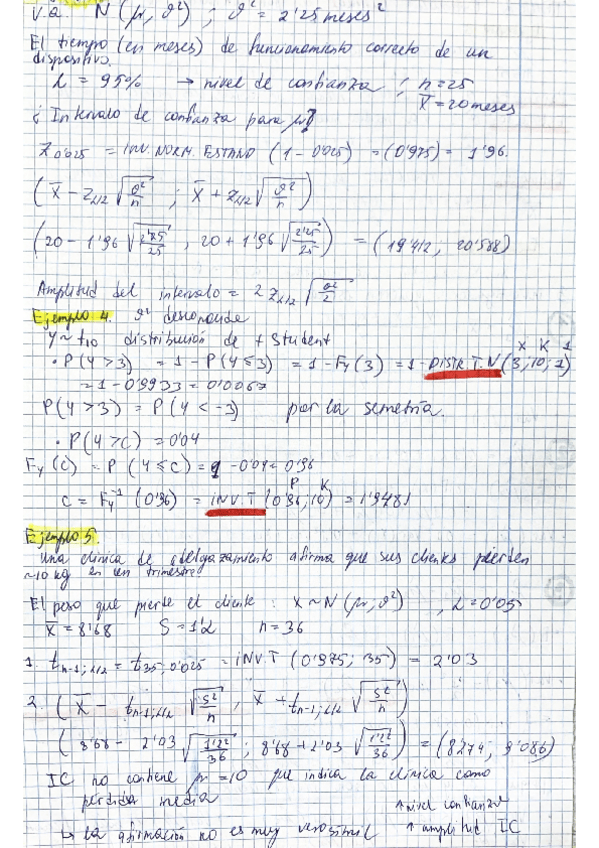 V.a. N(μ, σ²) ; σ² = 2'25 meses²
El tiempo (en meses) de funcionamiento correcto de un
dispositivo.
L = 95% → nivel de confianza ; n=25
X̄ = 20 meses
¿ Intervalo de confianza para μ?
Z0'025 = INV.NORM.ESTAND (1 - 0'025) = (0'975) = 1'96.
(X̄ - Zα/2 √(σ²/n) ; X̄ + Zα/2 √(σ²/n))
(20 - 1'96 √(2'25/25) , 20 + 1'96 √(2'25/25)) = (19'412, 20'588)
Amplitud del intervalo = 2 Zα/2 √(σ²/2)
Ejemplo 4. σ² desconocida
Y ~ t10 distribución de t Student
X K 1
• P(Y>3) = 1 - P(Y≤3) = 1 - FY(3) = 1 - DISTR.T.N (3; 10; 1)
= 1 - 0'9933 = 0'0067
P(Y>3) = P(Y < -3) por la semetría.
• P(Y>c) = 0'04
FY(c) = P(Y≤c) = 1 - 0'04 = 0'96
P K
c = FY⁻¹ (0'96) = INV.T (0'96; 10) = 1'9481
Ejemplo 5.
una clínica de adelgazamiento afirma que sus clientes pierden
~10 kg en un trimestre
El peso que pierde el cliente : X ~ N(μ, σ²) , L = 0'05
X̄ = 8'68 S = 1'2 n = 36
1. tn-1; α/2 = t35; 0'025 = INV.T (0'975; 35) = 2'03
2. (X̄ - tn-1; α/2 √(S²/n) , X̄ + tn-1; α/2 √(S²/n))
(8'68 - 2'03 √(1'2²/36) ; 8'68 + 2'03 √(1'2²/36)) = (8'274, 9'086)
IC no contiene μ = 10 que indica la clínica como
pérdida media
↑ nivel confianza
↳ la afirmación no es muy verosímil ↑ amplitud IC